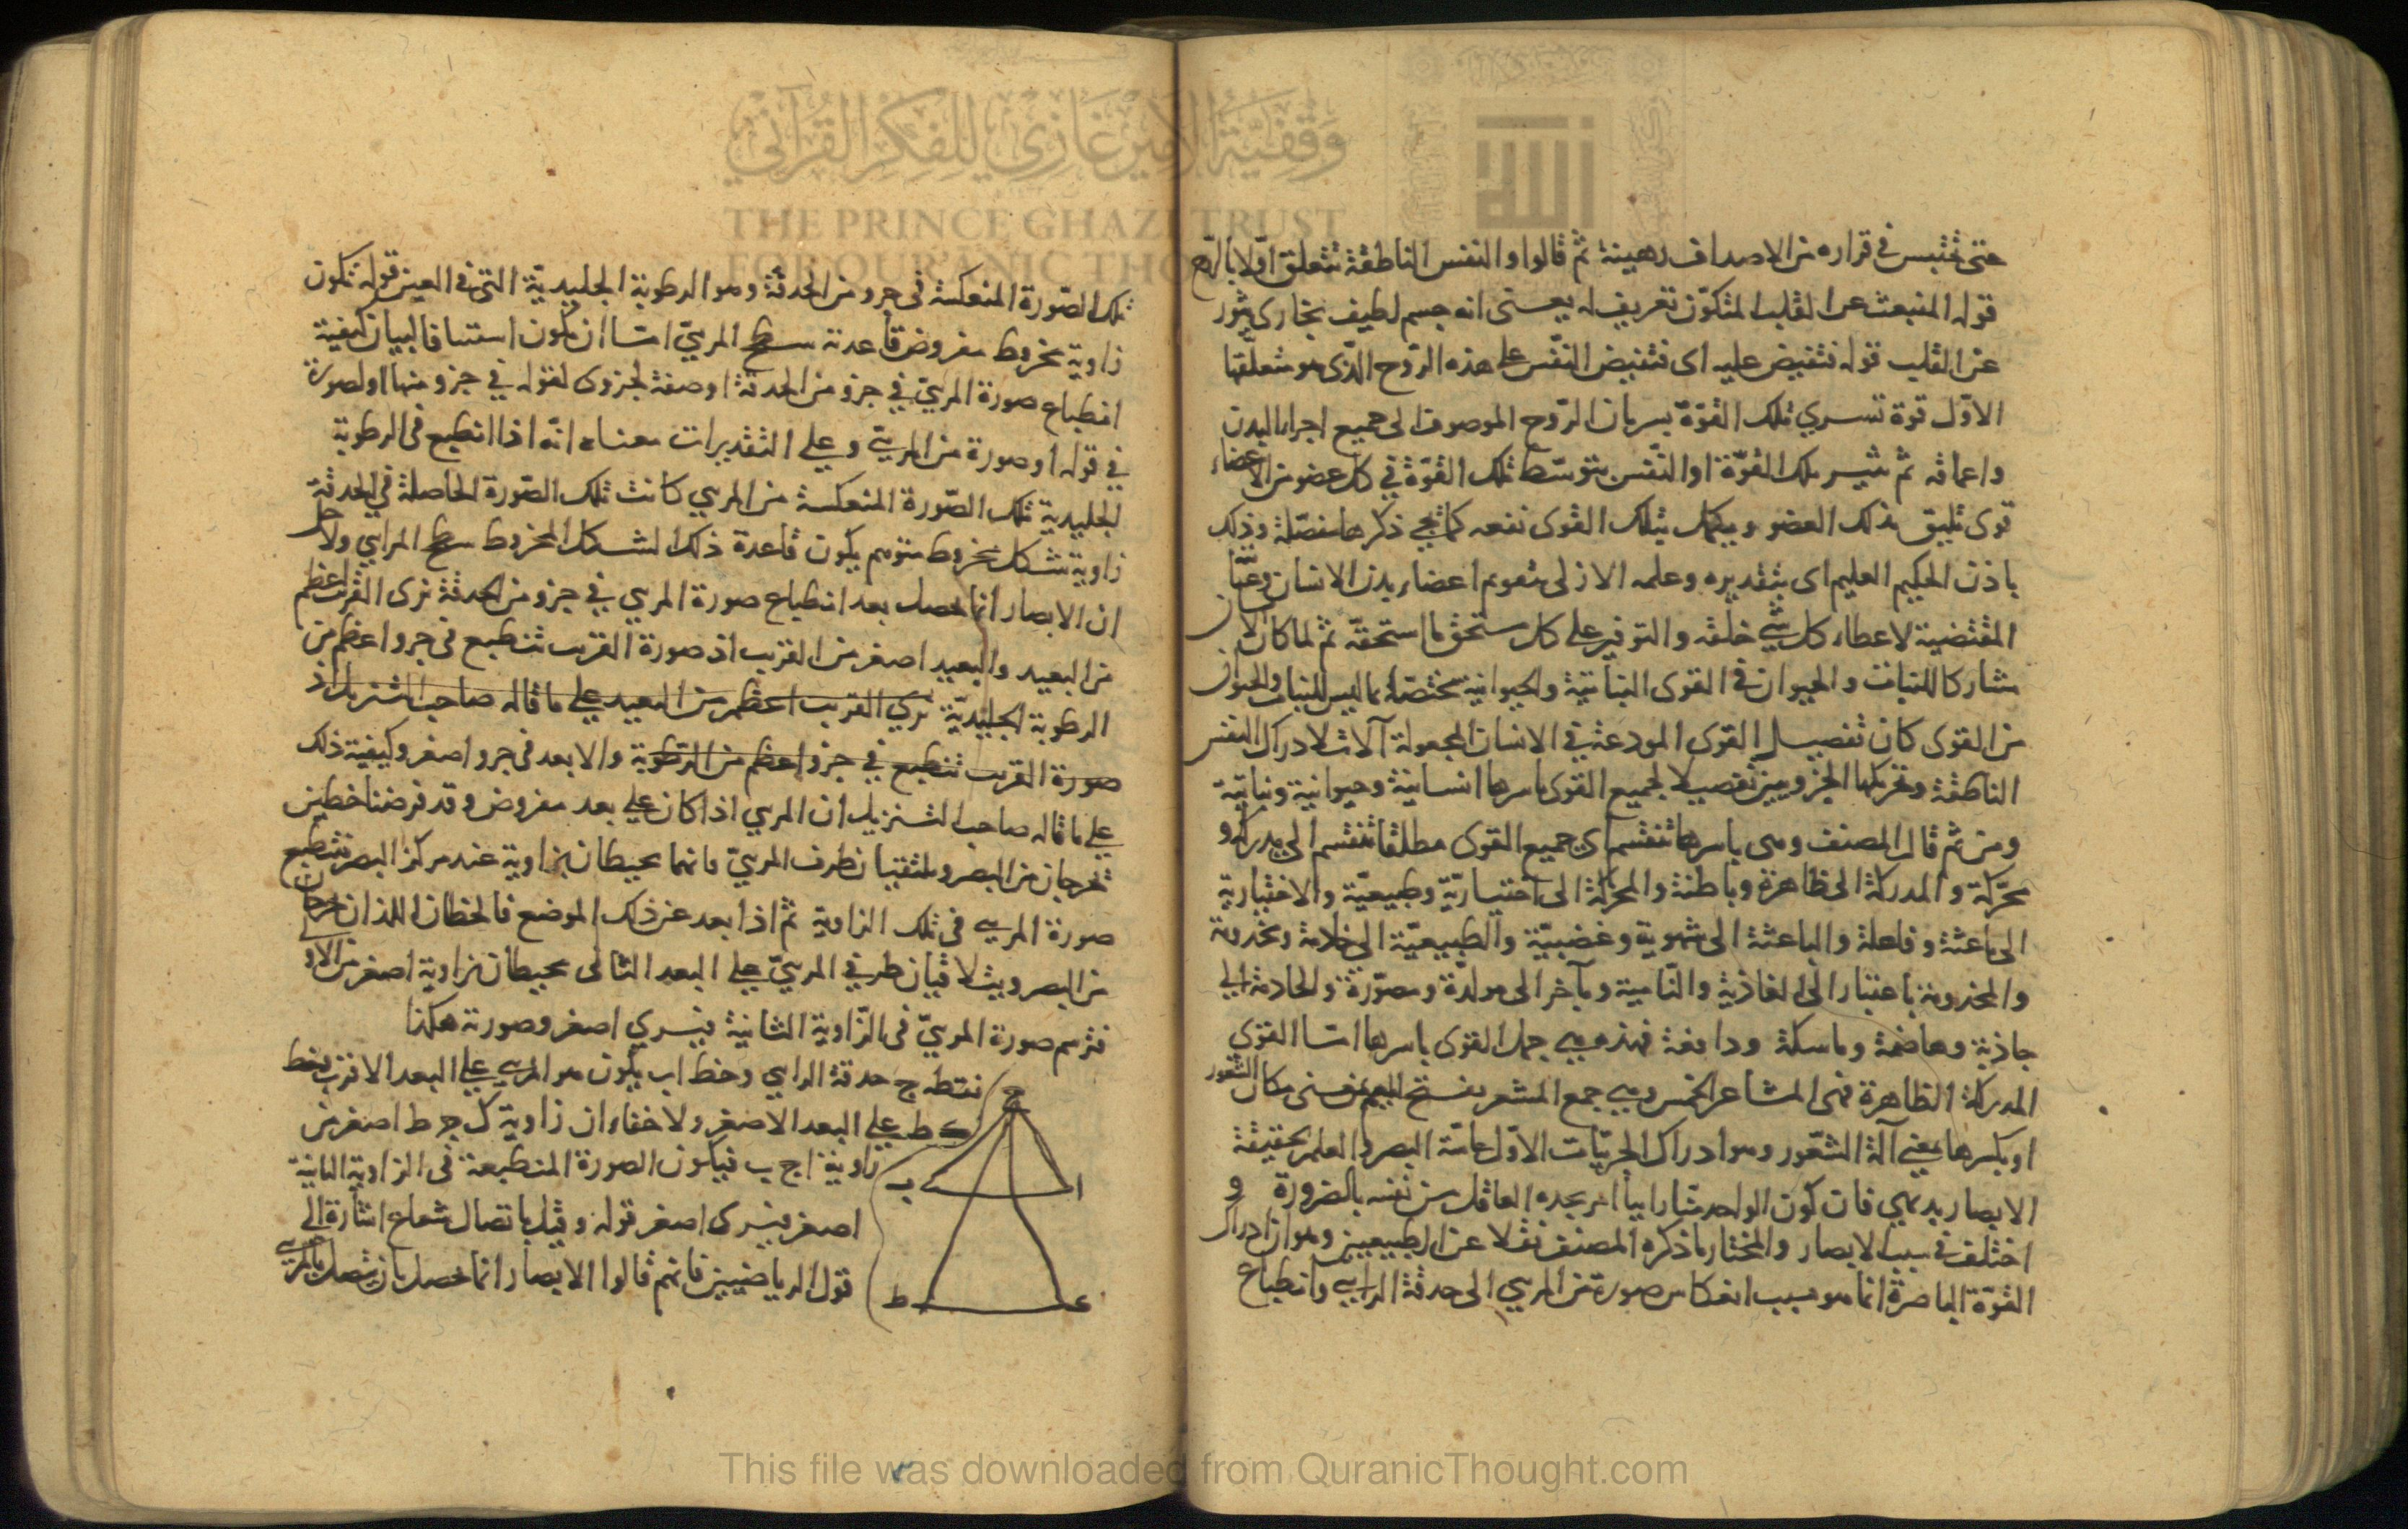 حتى تحتبس في قراره من الاصداف رهينة ثم قالوا والنفس الناطقة تتعلق اولا بالروح
قوله المنبعث عن القلب المتكون تعريف له يعنى انه جسم لطيف بخارى يثور
عن القلب قوله فتفيض عليه اى فتفيض النفس على هذه الروح الذى هو متعلقها
الاول قوة تسري تلك القوة بسريان الروح الموصوف الى جميع اجزاء البدن
واعماقه ثم تثير تلك القوة او النفس بتوسط تلك القوة في كل عضو من الاعضاء
قوى تليق بذلك العضو ويكمل بتلك القوى نفعه كما يجي ذكرها مفصلة وذلك
باذن الحكيم العليم اى بتقديره وعلمه الازلى بتقويم اعضاء بدن الانسان
المقتضية لاعطاء كل شي خلقه والتوفير على كل مستحق ما استحقه ثم لما كان الانسان
مشاركا للنبات والحيوان في القوى النباتية والحيوانية مختصا بما ليس للنبات والحيوان
من القوى كان تفصيل القوى المودعة في الانسان المجعولة آلات لادراك النفس
الناطقة وتحريكها الجزويين تفصيلا لجميع القوى باسرها انسانية وحيوانية ونباتية
ومن ثم قال المصنف وهى باسرها تنقسم اى جميع القوى مطلقا تنقسم الى مدركة و
محركة والمدركة الى ظاهرة وباطنة والمحركة الى اختيارية وطبيعية والاختيارية
الى باعثة وفاعلة والباعثة الى شهوية وغضبية والطبيعية الى خادمة ومخدومة
والمخدومة باعتبار الى الغاذية والنامية وبآخر الى مولدة ومصورة والخادمة الى
جاذبة وهاضمة وماسكة ودافعة فهذه هي جمل القوى باسرها امّا القوى
المدركة الظاهرة فهى المشاعر الخمس وهي جمع المشعر بفتح الميم بمعنى مكان الشعور
او بكسرها بمعنى آلة الشعور وهو ادراك الجزئيات الاول حاسة البصر والعلم بحقيقة
الابصار بديهي فان كون الواحد منا رائيا امر يجده العاقل من نفسه بالضرورة و
اختلف في سبب الابصار والمختار ما ذكره المصنف نقلا عن الطبيعيين وهو ان ادراك
القوة الباصرة انما هو بسبب انعكاس صورة من المرئي الى حدقة الرائي وانطباع
تلك الصورة المنعكسة في جزو من الحدقة وهو الرطوبة الجليدية التى في العين قوله تكون
زاوية مخروط مفروض قاعدته سطح المرئي امّا ان يكون استينافا لبيان كيفية
انطباع صورة المرئي في جزو من الحدقة او صفة لجزوى لقوله في جزو منها او لصورة
في قوله او صورة من المرئي وعلى التقديرات معناه انه اذا انطبع في الرطوبة
الجليدية تلك الصورة المنعكسة من المرئي كانت تلك الصورة الحاصلة في الحدقة
زاوية شكل مخروط متوهم يكون قاعدة ذلك الشكل المخروط سطح المرائي ولاجل
ان الابصار انما يحصل بعد انطباع صورة المرئي في جزو من الحدقة نرى القريب اعظم
من البعيد والبعيد اصغر من القريب اذ صورة القريب تنطبع في جزو اعظم من
الرطوبة الجليدية نرى القريب اعظم من البعيد على ما قاله صاحب الشنزيل اذ
صورة القريب تنطبع في جزو اعظم من الرطوبة والابعد في جزو اصغر وكيفية ذلك
على ما قاله صاحب الشنزيل ان المرئي اذا كان على بعد مفروض وقد فرضنا خطين
تخرجان من البصر ويلتقيان بطرف المرئي فانهما يحيطان بزاوية عند مركز البصر تنطبع
صورة المرئي في تلك الزاوية ثم اذا بعد عن ذلك الموضع فالخطان اللذان يخرجان
من البصر ويتلاقيان طرفي المرئي على البعد الثانى يحيطان بزاوية اصغر من الاو
فترسم صورة المرئي في الزاوية الثانية فيرى اصغر وصورته هكذا
نقطه ج حدقة الرائي وخط اب يكون هو المرئي على البعد الاقرب وخط
ك ط على البعد الاصغر ولا خفاء ان زاوية ك ج ط اصغر من
زاوية ا ج ب فيكون الصورة المنطبعة في الزاوية الثانية
اصغر فيرى اصغر قوله وقيل باتصال شعاع اشارة الى
قول الرياضيين فانهم قالوا الابصار انما يحصل بان يتصل بالمرئي
ج
ا
ب
ط
وقفية الأمير غازي للفكر القرآني
THE PRINCE GHAZI TRUST
FOR QUR'ANIC THO
This file was downloaded from QuranicThought.com